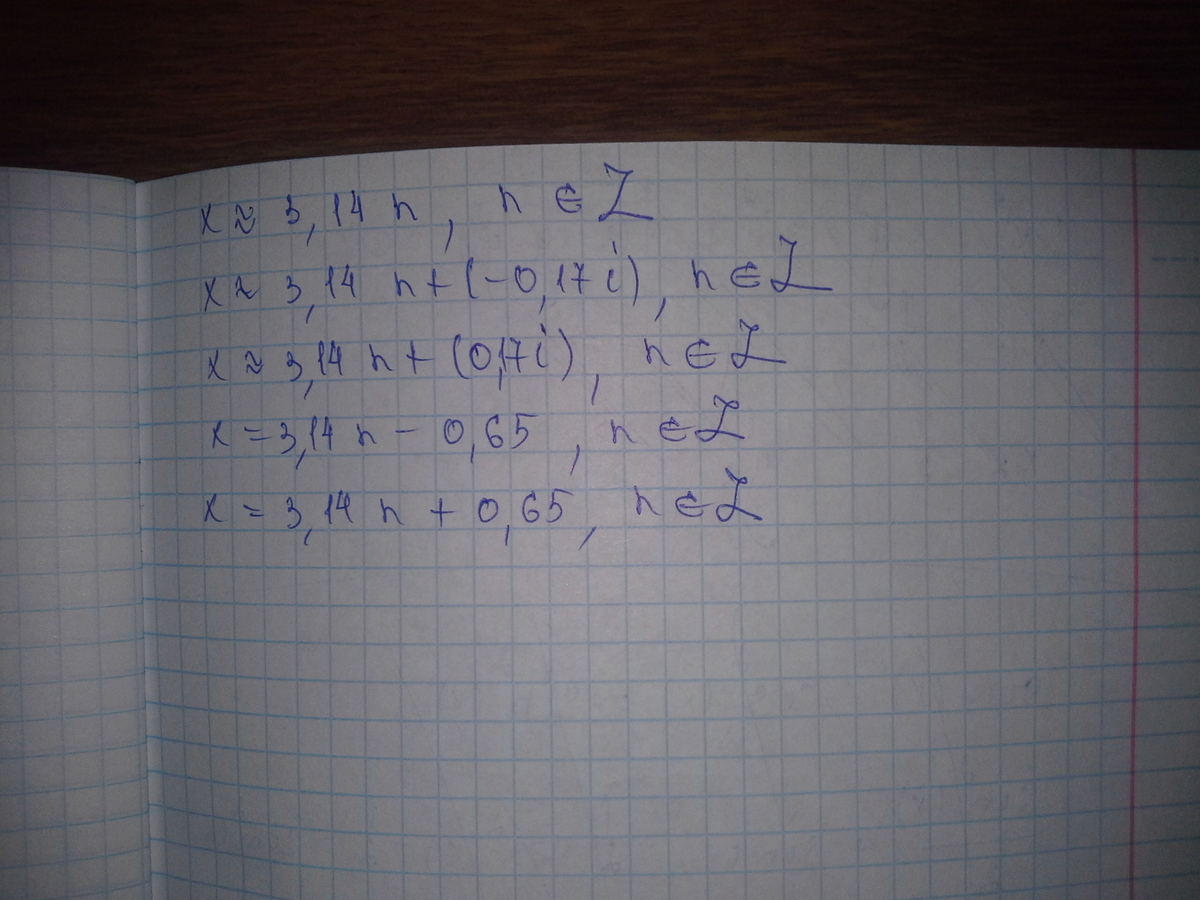 x ≈ 3,14 n, n ∈ Z
x ≈ 3,14 n + (-0,17 i), n ∈ Z
x ≈ 3,14 n + (0,17i), n ∈ Z
x = 3,14 n - 0,65, n ∈ Z
x = 3,14 n + 0,65, n ∈ Z